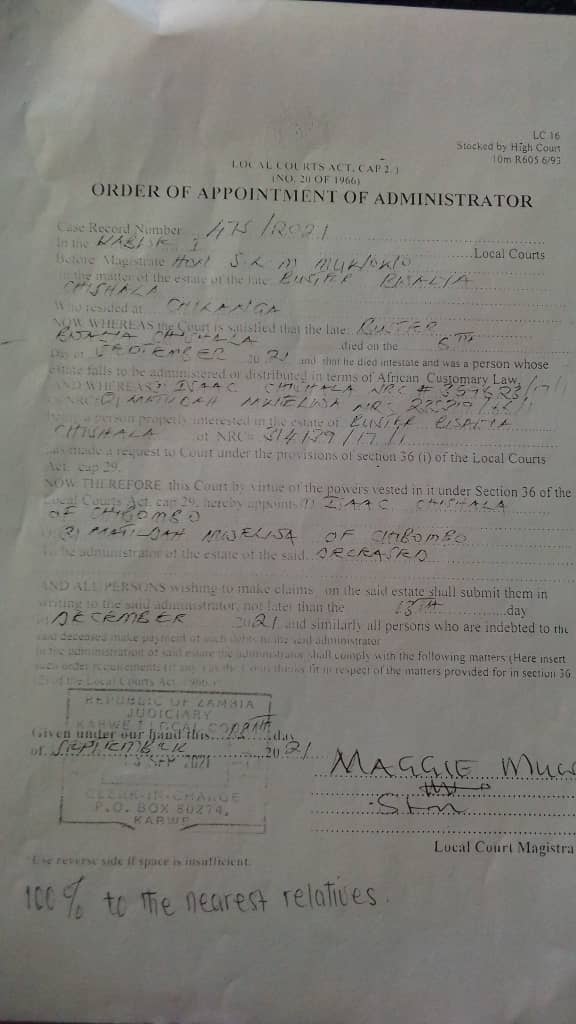 LC 16
Stocked by High Court
10m R605 6/93
LOCAL COURTS ACT, CAP 2
(NO. 20 OF 1966)
ORDER OF APPOINTMENT OF ADMINISTRATOR
Case Record Number 475/2021
In the KABWE I Local Courts
Before Magistrate Hon
In the matter of the estate of the late BUSTER
CHISHALA
Who resided at
NOW WHEREAS the Court is satisfied that the late BUSTER
CHISHALA died on the 6TH
Day of SEPTEMBER 2021 and that he died intestate and was a person whose
estate falls to be administered or distributed in terms of African Customary Law,
AND WHEREAS ISAAC CHISHALA NRC
NRC (2) MATILDAH MWELWA NRC
being a person properly interested in the estate of BUSTER
CHISHALA of NRC 514139/17/1
has made a request to Court under the provisions of section 36 (i) of the Local Courts
Act. cap 29.
NOW THEREFORE this Court by virtue of the powers vested in it under Section 36 of the
Local Courts Act, cap 29, hereby appoints (1) ISAAC CHISHALA
OF CHIBOMBO
(2) MATILDAH MWELWA OF CHIBOMBO
To be administrator of the estate of the said DECEASED
AND ALL PERSONS wishing to make claims on the said estate shall submit them in
writing to the said administrator, not later than the 13TH day
of DECEMBER 2021 and similarly all persons who are indebted to the
said deceased make payment of such debts to the said administrator
In the administration of said estate the administrator shall comply with the following matters (Here insert
such order requirements (if any) as the Court thinks fit in respect of the matters provided for in section 36
of the Local Courts Act 1966.
REPUBLIC OF ZAMBIA
JUDICIARY
KABWE LOCAL COURT
Given under our hand this day
of SEPTEMBER 2021
SEP 2021
MAGGIE
CLERK-IN-CHARGE
P.O. BOX 80274,
KABWE
Local Court Magistra
Use reverse side if space is insufficient.
100% to the nearest relatives.